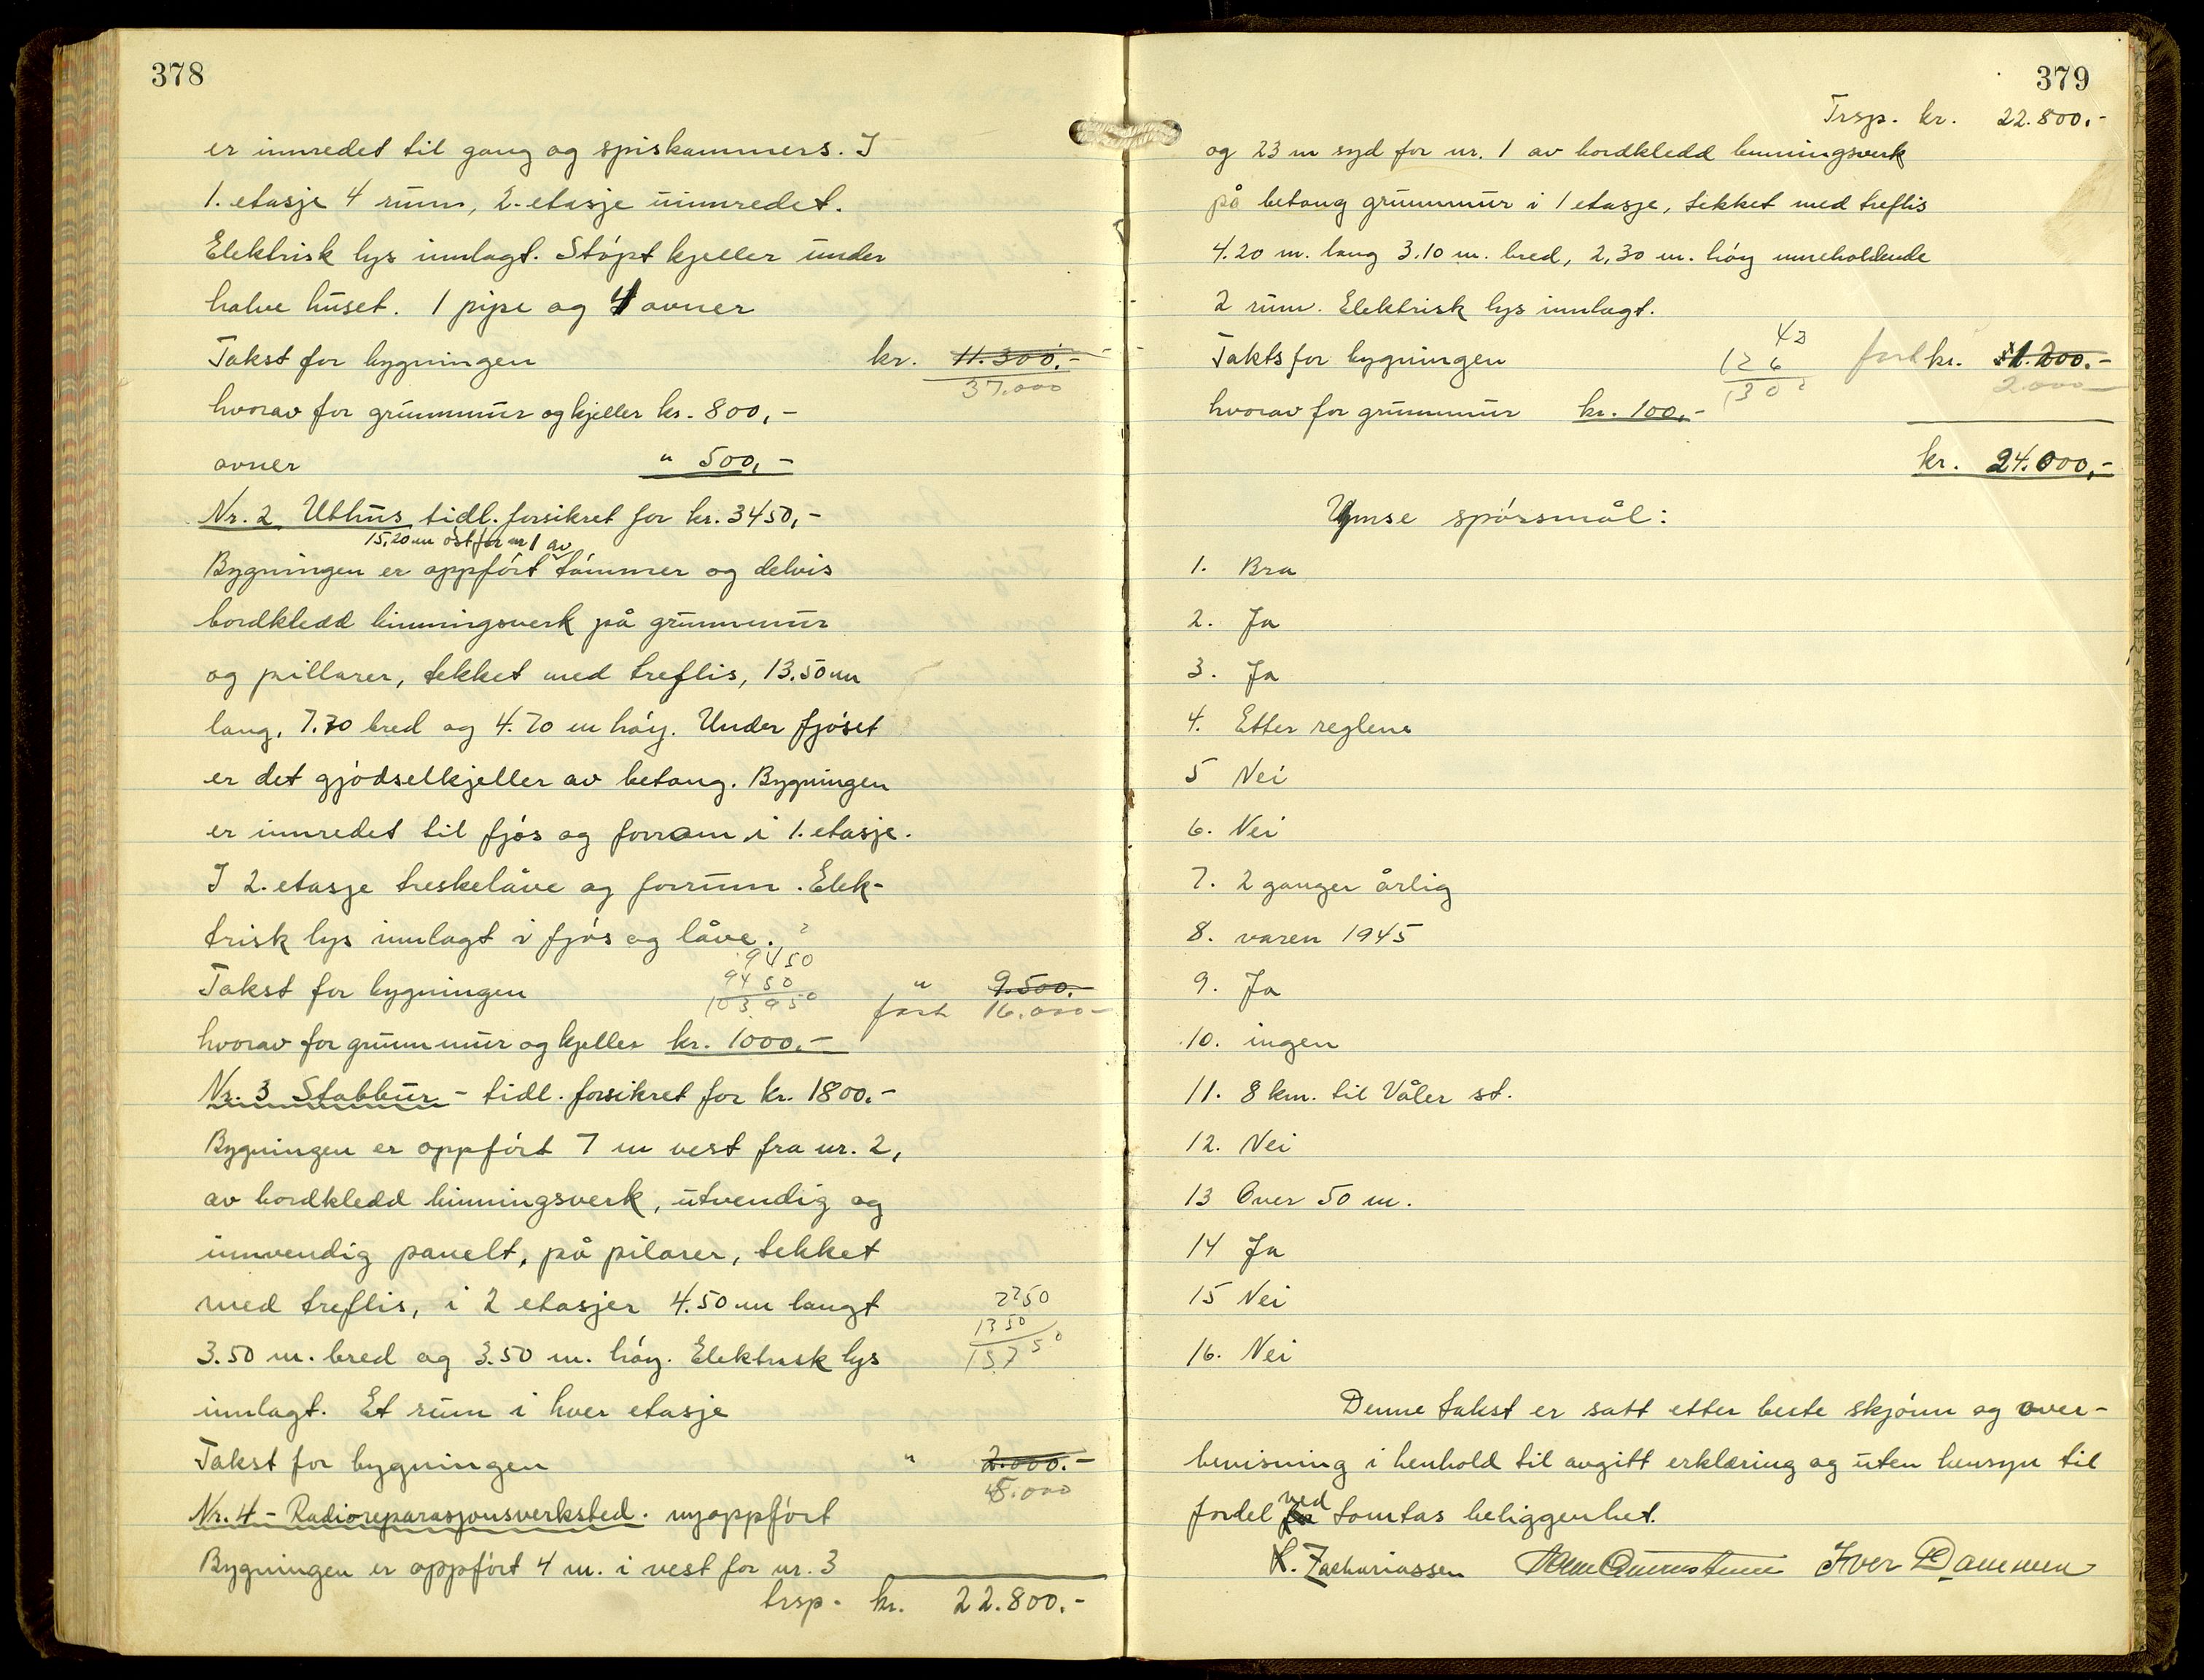 378
er innredet til gang og spiskammers. I
1. etasje 4 rum, 2. etasje uinnredet.
Elektrisk lys innlagt. Støpt kjeller under
halve huset. 1 pipe og 4 ovner
Takst for bygningen kr. 11.300.-
37.000
hvorav for grunnmur og kjeller kr. 800,-
ovner " 500,-
Nr. 2 Uthus tidl. forsikret for kr. 3450,-
15,20 m øst for nr 1 av
Bygningen er oppført tømmer og delvis
bordkledd binningsverk på grunnmur
og pillarer, tekket med treflis, 13.50 m
lang, 7.70 bred og 4.70 m høy. Under fjøset
er det gjødselkjeller av betong. Bygningen
er innredet til fjøs og forrom i 1. etasje.
I 2. etasje treskelåve og forrum. Elek-
trisk lys innlagt i fjøs og låve.
9450
Takst for bygningen 9450 " 9.500.-
103950 16.000-
hvorav for grunnmur og kjeller kr. 1000.-
Nr. 3 Stabbur - tidl. forsikret for kr. 1800.-
Bygningen er oppført 7 m vest fra nr. 2,
av bordkledd binningsverk, utvendig og
innvendig panelt, på pilarer, tekket
med treflis, i 2 etasjer 4.50 m langt
2250
1350
3.50 m. bred og 3.50 m. høy. Elektrisk lys
15750
innlagt. Et rum i hver etasje
Takst for bygningen " 2.000.-
5.000
Nr. 4 - Radioreparasjonsverksted. nyoppført
Bygningen er oppført 4 m. i vest for nr. 3
trsp. kr. 22.800.-
379
Trsp. kr. 22.800.-
og 23 m syd for nr. 1 av bordkledd binningsverk
på betong grunnmur i 1 etasje, tekket med treflis
4.20 m. lang 3.10 m. bred, 2,30 m. høy inneholdende
2 rum. Elektrisk lys innlagt.
42
Takts for bygningen 126 kr. 1.200.-
130 2.000-
hvorav for grunnmur kr. 100,-
kr. 24.000,-
Ymse spørsmål:
1. Bra
2. Ja
3. Ja
4. Etter reglene
5 Nei
6. Nei
7. 2 ganger årlig
8. varen 1945
9. Ja
10. ingen
11. 8 km. til Våler st.
12. Nei
13 Over 50 m.
14 Ja
15 Nei
16. Nei
Denne takst er satt etter beste skjønn og over-
bevisning i henhold til avgitt erklæring og uten hensyn til
fordel ved tomtas beliggenhet.
K. Zachariassen Iver Dammen